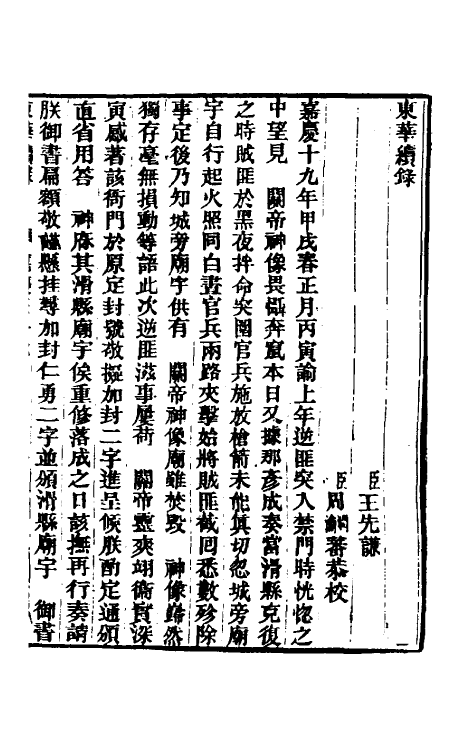 東華續錄
臣王先謙
臣周蕃恭校
嘉慶十九年甲戌春正月丙寅諭上年逆匪突入禁門時恍惚之
中望見　關帝神像畏懾奔竄本日又據那彥成奏當滑縣克復
之時賊匪於黑夜拌命突圍官兵施放槍箭未能真切忽城旁廟
宇自行起火照同白晝官兵兩路夾擊始將賊匪截回悉數殄除
事定後乃知城旁廟宇供有　關帝神像廟雖焚毀　神像巋然
獨存毫無損動等語此次逆匪滋事屢荷　關帝靈爽翊衛實深
寅感著該衙門於原定封號敬擬加封二字進呈候朕酌定通頒
直省用答　神庥其滑縣廟宇俟重修落成之日該撫再行奏請
朕御書扁額敬謹懸挂尋加封仁勇二字並頒滑縣廟宇　御書
一